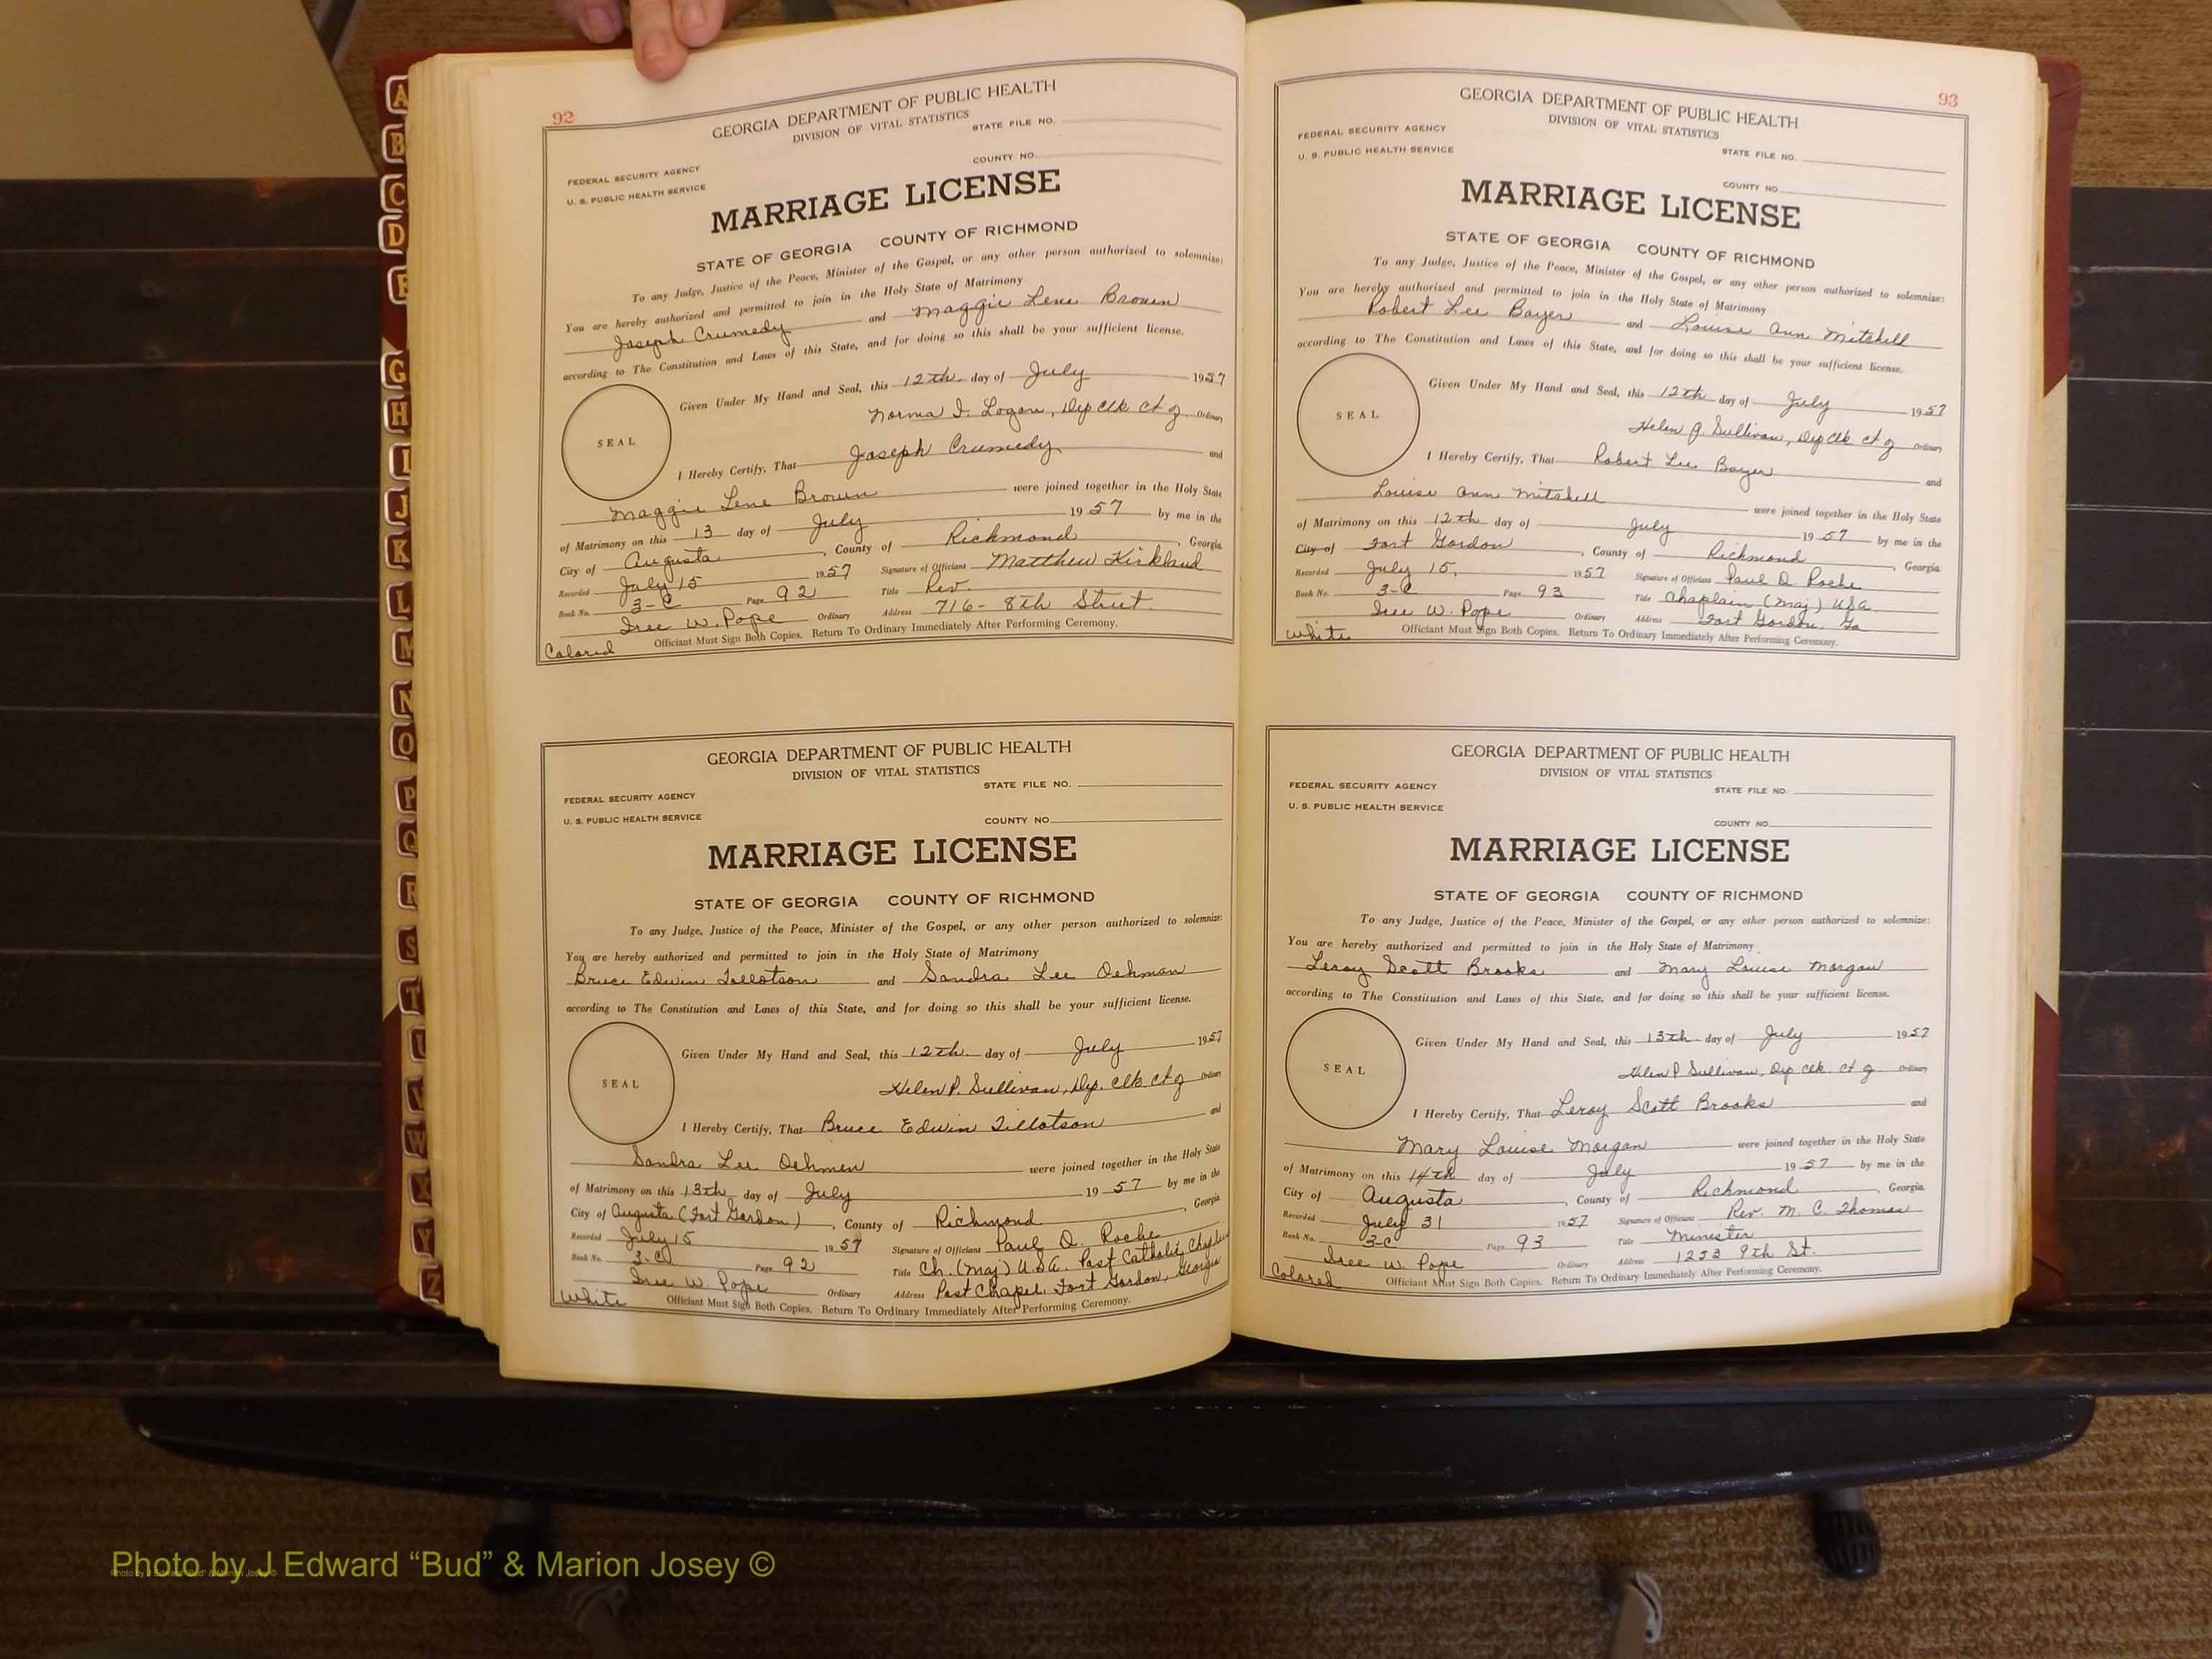 A
B
C
D
E
G
H
I
J
K
L
M
N
O
P
Q
R
S
T
U
V
W
X
Y
Z
92
GEORGIA DEPARTMENT OF PUBLIC HEALTH
DIVISION OF VITAL STATISTICS
STATE FILE NO.
COUNTY NO.
FEDERAL SECURITY AGENCY
U. S. PUBLIC HEALTH SERVICE
MARRIAGE LICENSE
STATE OF GEORGIA COUNTY OF RICHMOND
To any Judge, Justice of the Peace, Minister of the Gospel, or any other person authorized to solemnize:
You are hereby authorized and permitted to join in the Holy State of Matrimony
Joseph Crumedy and Maggie Lene Brown
according to The Constitution and Laws of this State, and for doing so this shall be your sufficient license.
Given Under My Hand and Seal, this 12th day of July 1957
SEAL
Norma I. Logan, Dep Clk Ct of Ordinary
I Hereby Certify, That Joseph Crumedy and
Maggie Lene Brown were joined together in the Holy State
of Matrimony on this 13 day of July 1957 by me in the
City of Augusta, County of Richmond, Georgia
Recorded July 15 1957 Signature of Officiant Matthew Kirkland
Book No. 3-C Page 92 Title Rev.
Iree W. Pope Ordinary Address 716- 8th Street
Officiant Must Sign Both Copies. Return To Ordinary Immediately After Performing Ceremony.
Colored
GEORGIA DEPARTMENT OF PUBLIC HEALTH
DIVISION OF VITAL STATISTICS
STATE FILE NO.
FEDERAL SECURITY AGENCY
U. S. PUBLIC HEALTH SERVICE
COUNTY NO.
MARRIAGE LICENSE
STATE OF GEORGIA COUNTY OF RICHMOND
To any Judge, Justice of the Peace, Minister of the Gospel, or any other person authorized to solemnize:
You are hereby authorized and permitted to join in the Holy State of Matrimony
Bruce Edwin Tillotson and Sandra Lee Oehman
according to The Constitution and Laws of this State, and for doing so this shall be your sufficient license.
Given Under My Hand and Seal, this 12th day of July 1957
SEAL
Helen P. Sullivan, Dep. Clk Ct of Ordinary
I Hereby Certify, That Bruce Edwin Tillotson and
Sandra Lee Oehmen were joined together in the Holy State
of Matrimony on this 13th day of July 1957 by me in the
City of Augusta (Fort Gordon), County of Richmond, Georgia
Recorded July 15 1957 Signature of Officiant Paul Q. Roche
Book No. 3-C Page 92 Title Ch. (Maj) U.S.A. Post Catholic Chaplain
Iree W. Pope Ordinary Address Post Chapel, Fort Gordon, Georgia
White Officiant Must Sign Both Copies. Return To Ordinary Immediately After Performing Ceremony.
93
GEORGIA DEPARTMENT OF PUBLIC HEALTH
DIVISION OF VITAL STATISTICS
FEDERAL SECURITY AGENCY
U. S. PUBLIC HEALTH SERVICE
STATE FILE NO.
COUNTY NO.
MARRIAGE LICENSE
STATE OF GEORGIA COUNTY OF RICHMOND
To any Judge, Justice of the Peace, Minister of the Gospel, or any other person authorized to solemnize:
You are hereby authorized and permitted to join in the Holy State of Matrimony
Robert Lee Boyer and Louise Ann Mitchell
according to The Constitution and Laws of this State, and for doing so this shall be your sufficient license.
Given Under My Hand and Seal, this 12th day of July 1957
SEAL
Helen P. Sullivan, Dep Clk Ct of Ordinary
I Hereby Certify, That Robert Lee Boyer and
Louise Ann Mitchell were joined together in the Holy State
of Matrimony on this 12th day of July 1957 by me in the
City of Fort Gordon, County of Richmond, Georgia
Recorded July 15, 1957 Signature of Officiant Paul Q. Roche
Book No. 3-C Page 93 Title Chaplain (Maj) USA
Iree W. Pope Ordinary Address Fort Gordon, Ga
White Officiant Must Sign Both Copies. Return To Ordinary Immediately After Performing Ceremony.
GEORGIA DEPARTMENT OF PUBLIC HEALTH
DIVISION OF VITAL STATISTICS
FEDERAL SECURITY AGENCY
STATE FILE NO.
U. S. PUBLIC HEALTH SERVICE
COUNTY NO.
MARRIAGE LICENSE
STATE OF GEORGIA COUNTY OF RICHMOND
To any Judge, Justice of the Peace, Minister of the Gospel, or any other person authorized to solemnize:
You are hereby authorized and permitted to join in the Holy State of Matrimony
Leroy Scott Brooks and Mary Louise Morgan
according to The Constitution and Laws of this State, and for doing so this shall be your sufficient license.
Given Under My Hand and Seal, this 13th day of July 1957
SEAL
Helen P Sullivan, Dep Clk. Ct of Ordinary
I Hereby Certify, That Leroy Scott Brooks and
Mary Louise Morgan were joined together in the Holy State
of Matrimony on this 14th day of July 1957 by me in the
City of Augusta, County of Richmond, Georgia
Recorded July 31 1957 Signature of Officiant Rev. M. C. Thomas
Book No. 3-C Page 93 Title Minister
Iree W. Pope Ordinary Address 1253 9th St.
Colored Officiant Must Sign Both Copies. Return To Ordinary Immediately After Performing Ceremony.
Photo by J Edward “Bud” & Marion Josey ©
Photo by J Edward "Bud" & Marion Josey ©